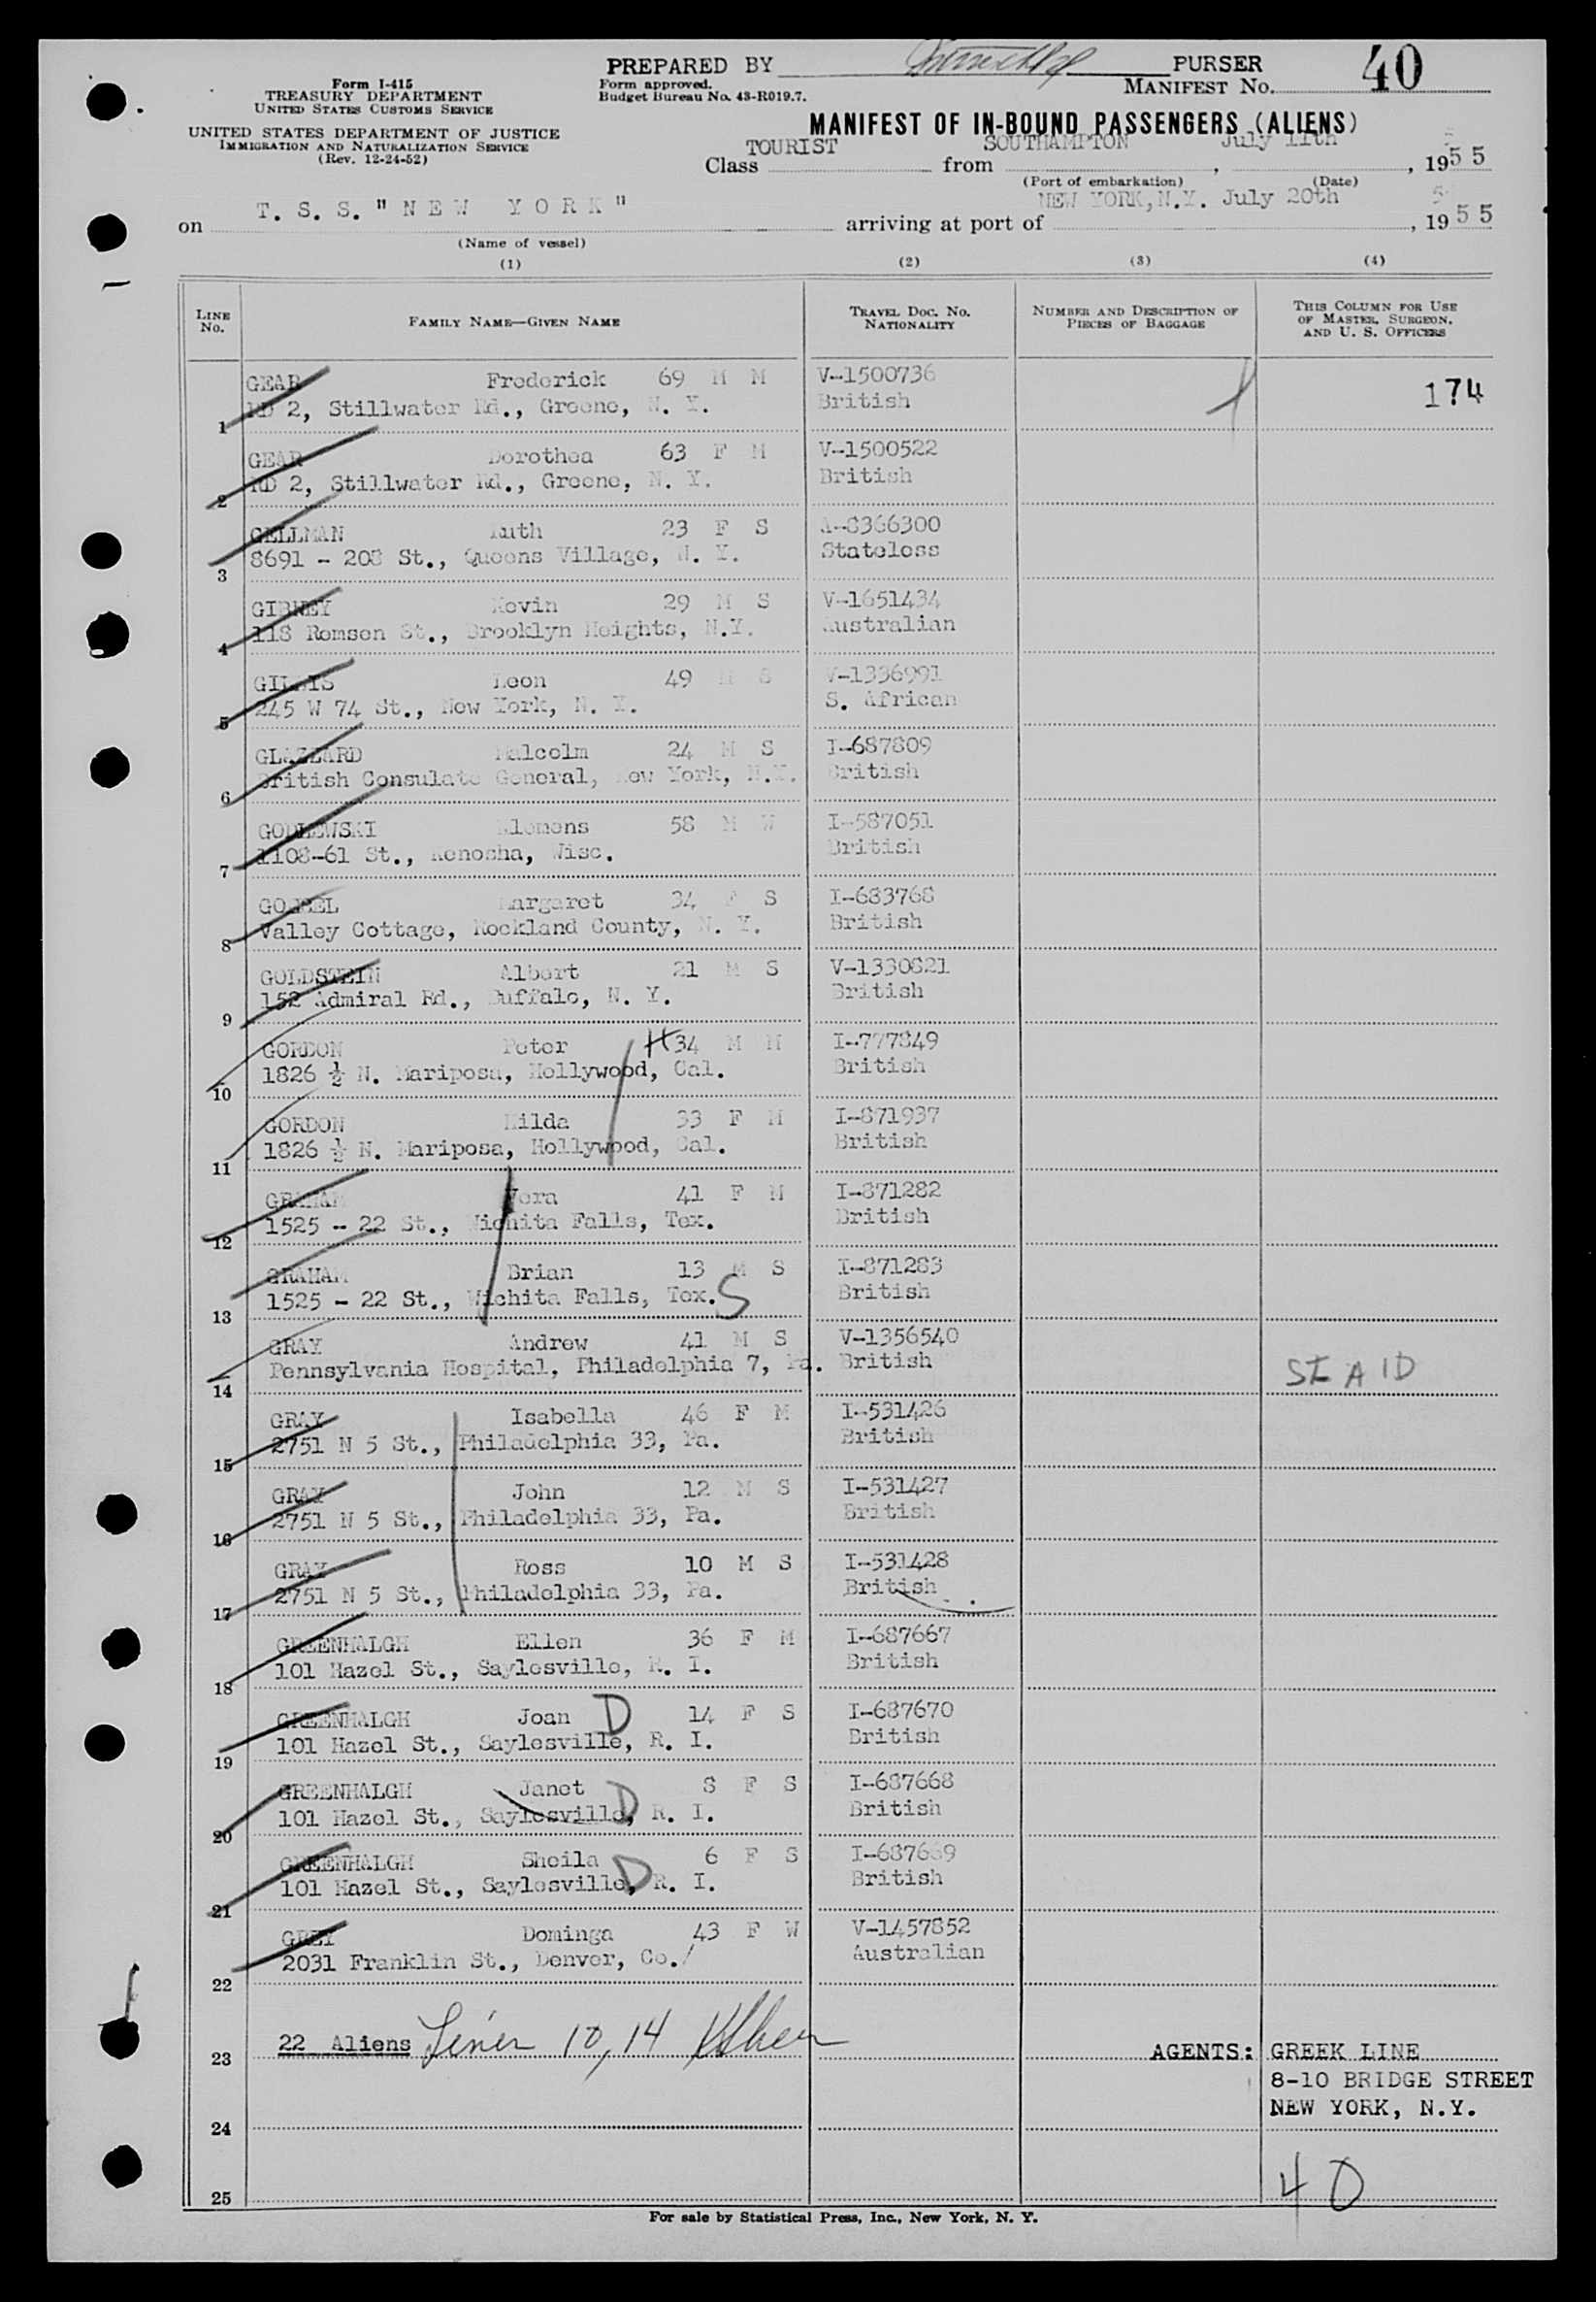 PREPARED BY PURSER
Form I-415
TREASURY DEPARTMENT
UNITED STATES CUSTOMS SERVICE
UNITED STATES DEPARTMENT OF JUSTICE
IMMIGRATION AND NATURALIZATION SERVICE
(Rev. 12-24-52)
Form approved.
Budget Bureau No. 43-R019.7.
MANIFEST No. 40
MANIFEST OF IN-BOUND PASSENGERS (ALIENS)
Class TOURIST from SOUTHAMPTON, July 11th, 1955
(Port of embarkation) (Date)
on T. S. S. "NEW YORK" arriving at port of NEW YORK, N.Y. July 20th, 1955
(Name of vessel)
(1) (2) (3) (4)
LINE No. FAMILY NAME—GIVEN NAME TRAVEL DOC. No. NATIONALITY NUMBER AND DESCRIPTION OF PIECES OF BAGGAGE THIS COLUMN FOR USE OF MASTER, SURGEON, AND U. S. OFFICERS
GEAR Frederick 69 M M V-1500736
1 RD 2, Stillwater Rd., Greene, N. Y. British 174
GEAR Dorothea 63 F M V-1500522
2 RD 2, Stillwater Rd., Greene, N. Y. British
GELLMAN Ruth 23 F S A-8366300
3 8691 - 208 St., Queens Village, N. Y. Stateless
GIBNEY Kevin 29 M S V-1651434
4 118 Remsen St., Brooklyn Heights, N.Y. Australian
Leon 49 M S V-1336991
5 245 W 74 St., New York, N. Y. S. African
GLAZZARD Malcolm 24 M S I-687809
6 British Consulate General, New York, N.Y. British
GODLEWSKI Klemens 58 M W I-587051
7 1108-61 St., Kenosha, Wisc. British
Margaret 34 F S I-683768
8 Valley Cottage, Rockland County, N. Y. British
GOLDSTEIN Albert 21 M S V-1330821
9 152 Admiral Rd., Buffalo, N. Y. British
GORDON Peter H 34 M M I-777849
10 1826 ½ N. Mariposa, Hollywood, Cal. British
GORDON Hilda 33 F M I-871937
11 1826 ½ N. Mariposa, Hollywood, Cal. British
GRAHAM Vera 41 F M I-871282
12 1525 - 22 St., Wichita Falls, Tex. British
GRAHAM Brian 13 M S I-871283
13 1525 - 22 St., Wichita Falls, Tex. S British
GRAY Andrew 41 M S V-1356540
14 Pennsylvania Hospital, Philadelphia 7, Pa. British
GRAY Isabella 46 F M I-531426
15 2751 N 5 St., Philadelphia 33, Pa. British
GRAY John 12 M S I-531427
16 2751 N 5 St., Philadelphia 33, Pa. British
GRAY Ross 10 M S I-531428
17 2751 N 5 St., Philadelphia 33, Pa. British
GREENHALGH Ellen 36 F M I-687667
18 101 Hazel St., Saylesville, R. I. British
GREENHALGH Joan D 14 F S I-687670
19 101 Hazel St., Saylesville, R. I. British
GREENHALGH Janet D 8 F S I-687668
20 101 Hazel St., Saylesville, R. I. British
GREENHALGH Sheila D 6 F S I-687669
21 101 Hazel St., Saylesville, R. I. British
GREY Dominga 43 F W V-1457852
22 2031 Franklin St., Denver, Co. Australian
23 22 Aliens 10, 14 AGENTS: GREEK LINE
8-10 BRIDGE STREET
24 NEW YORK, N.Y.
25 40
For sale by Statistical Press, Inc., New York, N. Y.